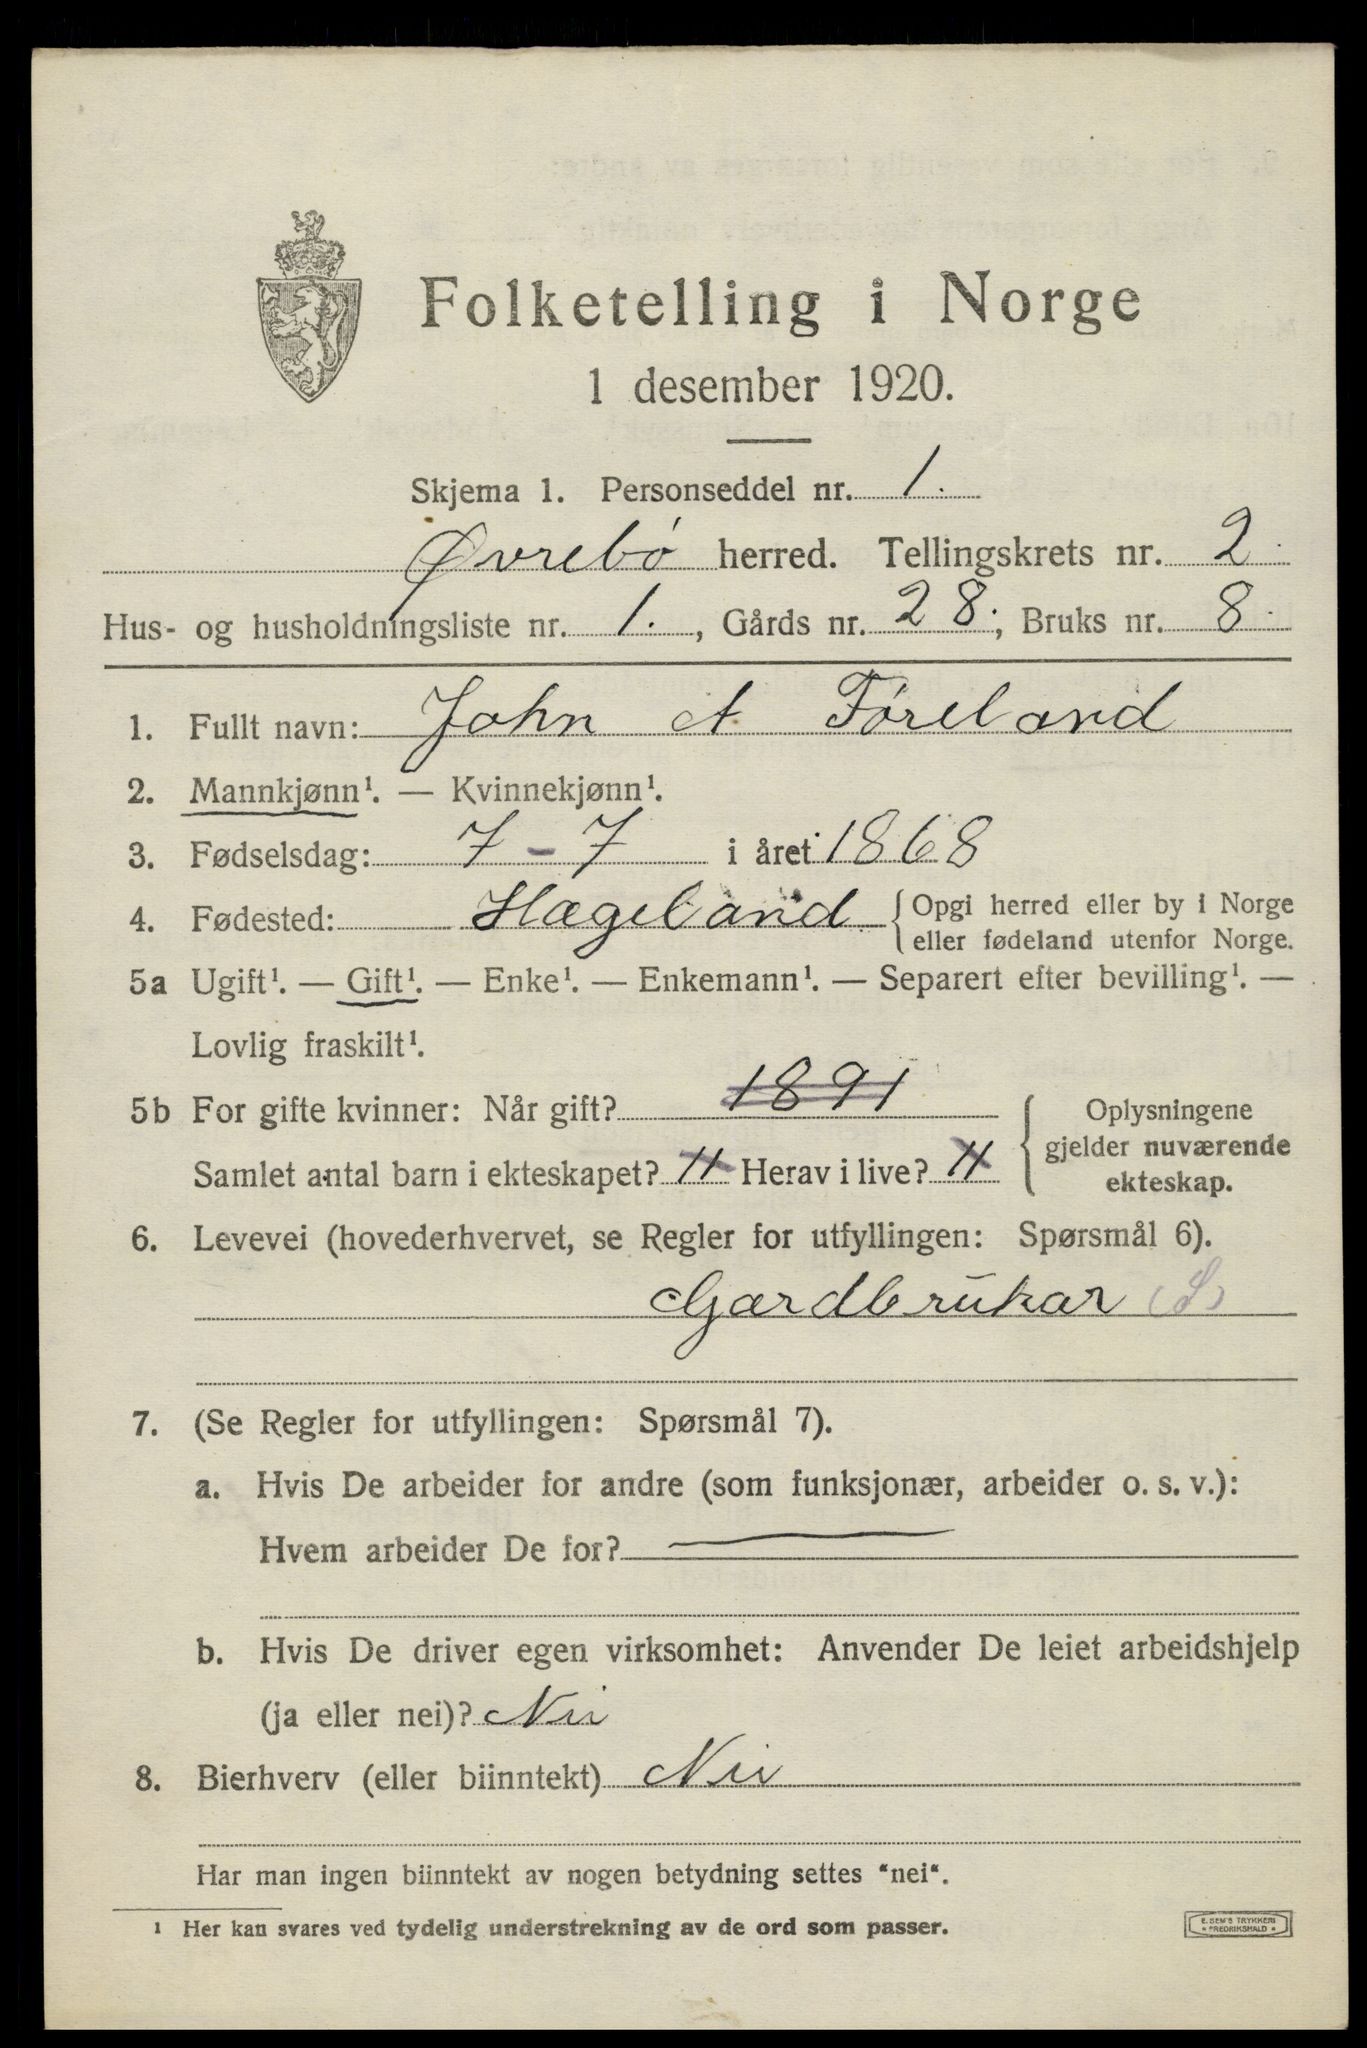 Folketelling i Norge
1 desember 1920.
Skjema 1. Personseddel nr. 1.
Øvrebø herred. Tellingskrets nr. 2.
Hus- og husholdningsliste nr. 1., Gårds nr. 28., Bruks nr. 8.
1. Fullt navn: John A Føreland
2. Mannkjønn¹. — Kvinnekjønn¹.
3. Fødselsdag: 7-7 i året 1868
4. Fødested: Hægeland { Opgi herred eller by i Norge
eller fødeland utenfor Norge.
5a Ugift¹. — Gift¹. — Enke¹. — Enkemann¹. — Separert efter bevilling¹. —
Lovlig fraskilt¹.
5b For gifte kvinner: Når gift? 1891
Samlet antal barn i ekteskapet? 11 Herav i live? 11
{ Oplysningene
gjelder nuværende
ekteskap.
6. Levevei (hovederhvervet, se Regler for utfyllingen: Spørsmål 6).
Gardbrukar (S)
7. (Se Regler for utfyllingen: Spørsmål 7).
a. Hvis De arbeider for andre (som funksjonær, arbeider o. s. v.):
Hvem arbeider De for? —
b. Hvis De driver egen virksomhet: Anvender De leiet arbeidshjelp
(ja eller nei)? Nei
8. Bierhverv (eller biinntekt) Nei
Har man ingen biinntekt av nogen betydning settes "nei".
¹ Her kan svares ved tydelig understrekning av de ord som passer.
E. SEM'S TRYKKERI
FREDRIKSHALD